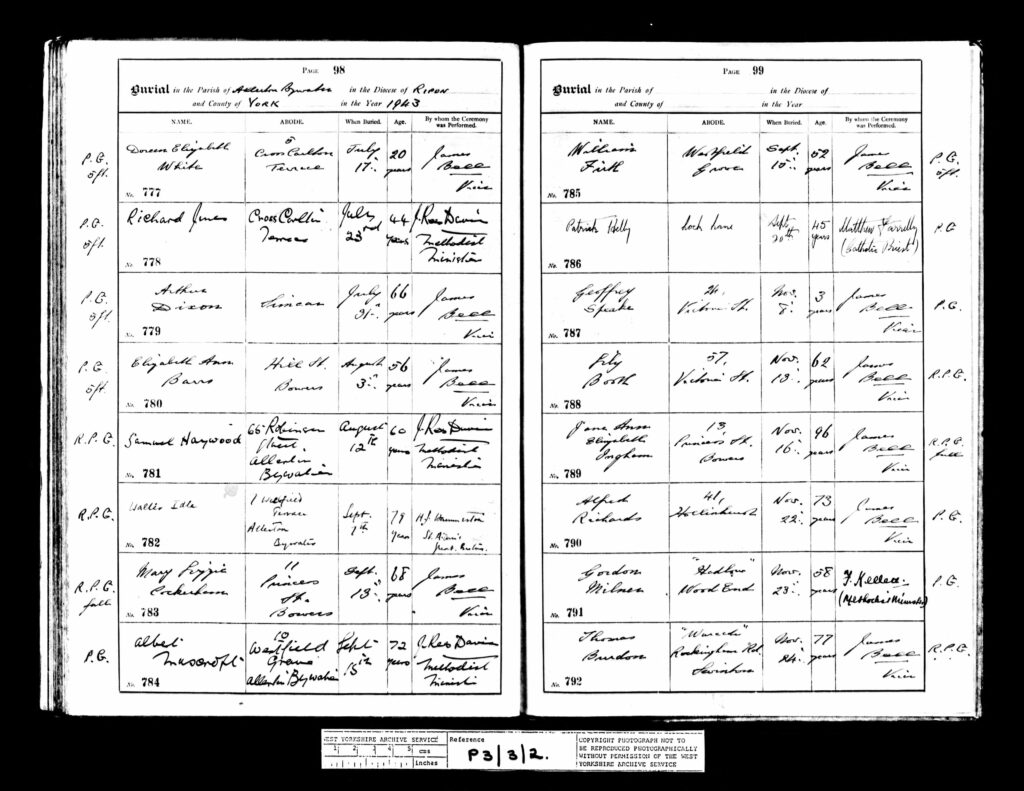 PAGE 98
Burial in the Parish of Allerton Bywater in the Diocese of RIPON
and County of YORK in the Year 1943
NAME. ABODE. When Buried. Age. By whom the Ceremony was Performed.
P.G. 5ft. Doreen Elizabeth White 5 Cross Carlton Terrace July 17th 20 years James Bell Vicar
No. 777
P.G. 5ft. Richard Jones Cross Carlton Terrace July 23rd 44 years J. Rees Davies Methodist Minister
No. 778
P.G. 5ft. Arthur Dixon July 31st 66 years James Bell Vicar
No. 779
P.G. 5ft. Elizabeth Ann Barrs Hill St. Bowers August 3rd 56 years James Bell Vicar
No. 780
R.P.G. Samuel Haywood 65 Robinson Street Allerton Bywater August 12th 60 years J. Rees Davies Methodist Minister
No. 781
R.P.G. Walter Idle 1 Westfield Terrace Allerton Bywater Sept. 7th 79 years
No. 782
R.P.G. full Mary Lizzie Cockerham 11 Princes St. Bowers Sept. 13th 68 years James Bell Vicar
No. 783
P.G. Albert Muscroft 10 Westfield Grove Allerton Bywater Sept 15th 72 years J. Rees Davies Methodist Minister
No. 784
PAGE 99
Burial in the Parish of in the Diocese of
and County of in the Year
NAME. ABODE. When Buried. Age. By whom the Ceremony was Performed.
William Firth Westfield Grove Sept. 15th 52 years James Bell Vicar P.G. 5ft.
No. 785
Patrick Kelly Lock Lane Sept. 20th 45 years Matthew Farrelly (Catholic Priest) P.G.
No. 786
Geoffrey Speake Victoria St. Nov. 8th 3 years James Bell Vicar P.G.
No. 787
Booth 57, Victoria St. Nov. 13th 62 years James Bell Vicar R.P.G.
No. 788
Jane Ann Elizabeth Ingham 13, Princess St. Bowers Nov. 16th 96 years James Bell Vicar R.P.G. full
No. 789
Alfred Richards 41, Hollinhurst Nov. 22nd 73 years James Bell Vicar P.G.
No. 790
Gordon Milner Wood End Nov. 23rd 58 years F. Kellett (Methodist Minister) P.G.
No. 791
Thomas Burdon Rockingham Rd. Swinton Nov. 24th 77 years James Bell Vicar R.P.G.
No. 792
WEST YORKSHIRE ARCHIVE SERVICE
1 2 3 4 5 cms
inches
Reference
P3/3/2.
COPYRIGHT PHOTOGRAPH NOT TO
BE REPRODUCED PHOTOGRAPHICALLY
WITHOUT PERMISSION OF THE WEST
YORKSHIRE ARCHIVE SERVICE